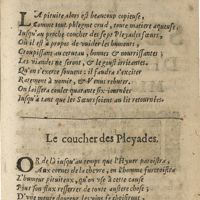 LA pituite alors est beaucoup copieuse,
Comme tout phlegme crud, toute matiere aqueuse,
Jusqu'au proche coucher des sept Pleyades sœurs,
Où il est à propos de vuider les humeurs,
Croupissans au cerveau, bonnes & nourrissantes;
Les viandes se feront, & le goust irritantes.
Qu'on s'exerce souvent; il faudra s'exciter
Rarement à vomir, & Venus rebuter,
On laissera couler quarante six journées
Jusqu'à tant que les Sœurs soient au lit retournées.
Le coucher des Pleyades.
OR de là jusqu'au temps que l'Hyver paroistra,
Aux cornes de la chevre, en l'homme surcroistra
L'humeur pituiteux, qu'on use à cette cause
Pour son estux resserrer de toute austere chose;